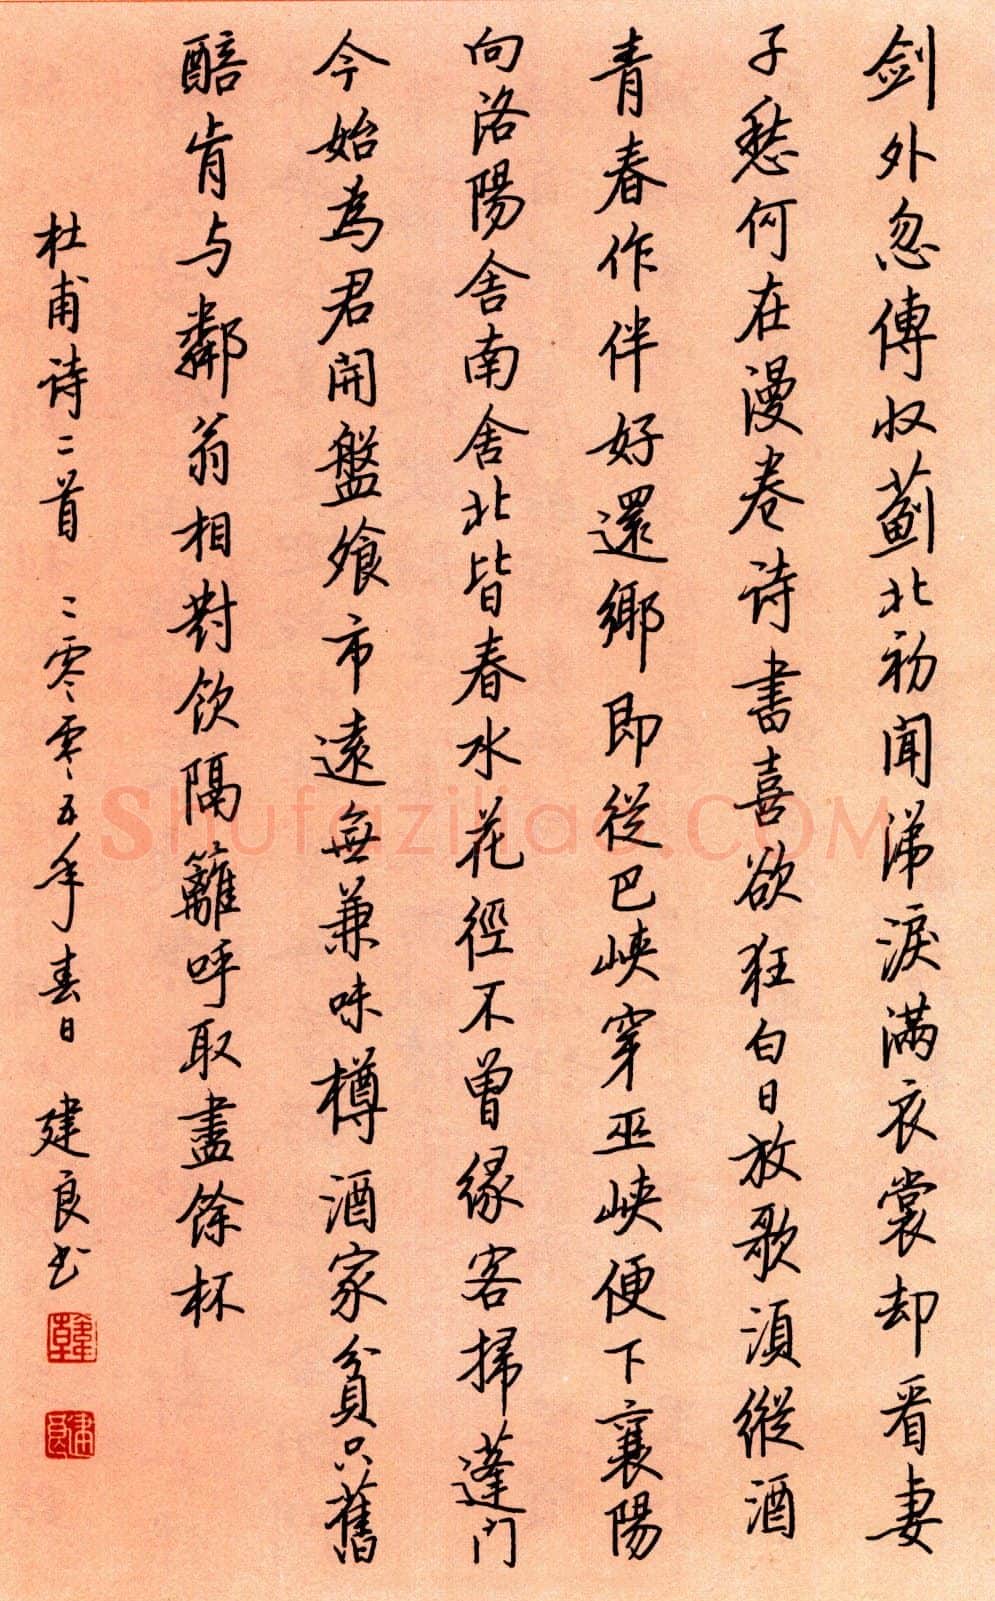 剑外忽傳收薊北初闻涕淚满衣裳却看妻
子愁何在漫卷诗書喜欲狂白日放歌湏縱酒
青春作伴好還鄉即從巴峡穿巫峡便下襄陽
向洛陽舍南舍北皆春水花徑不曾缘客掃蓬门
今始為君開盤飧市遠無兼味樽酒家貧只舊
醅肯与鄰翁相對飲隔籬呼取盡餘杯
杜甫诗二首 二零零五年春日 建良书
韓
建良
Shufaziliao.COM